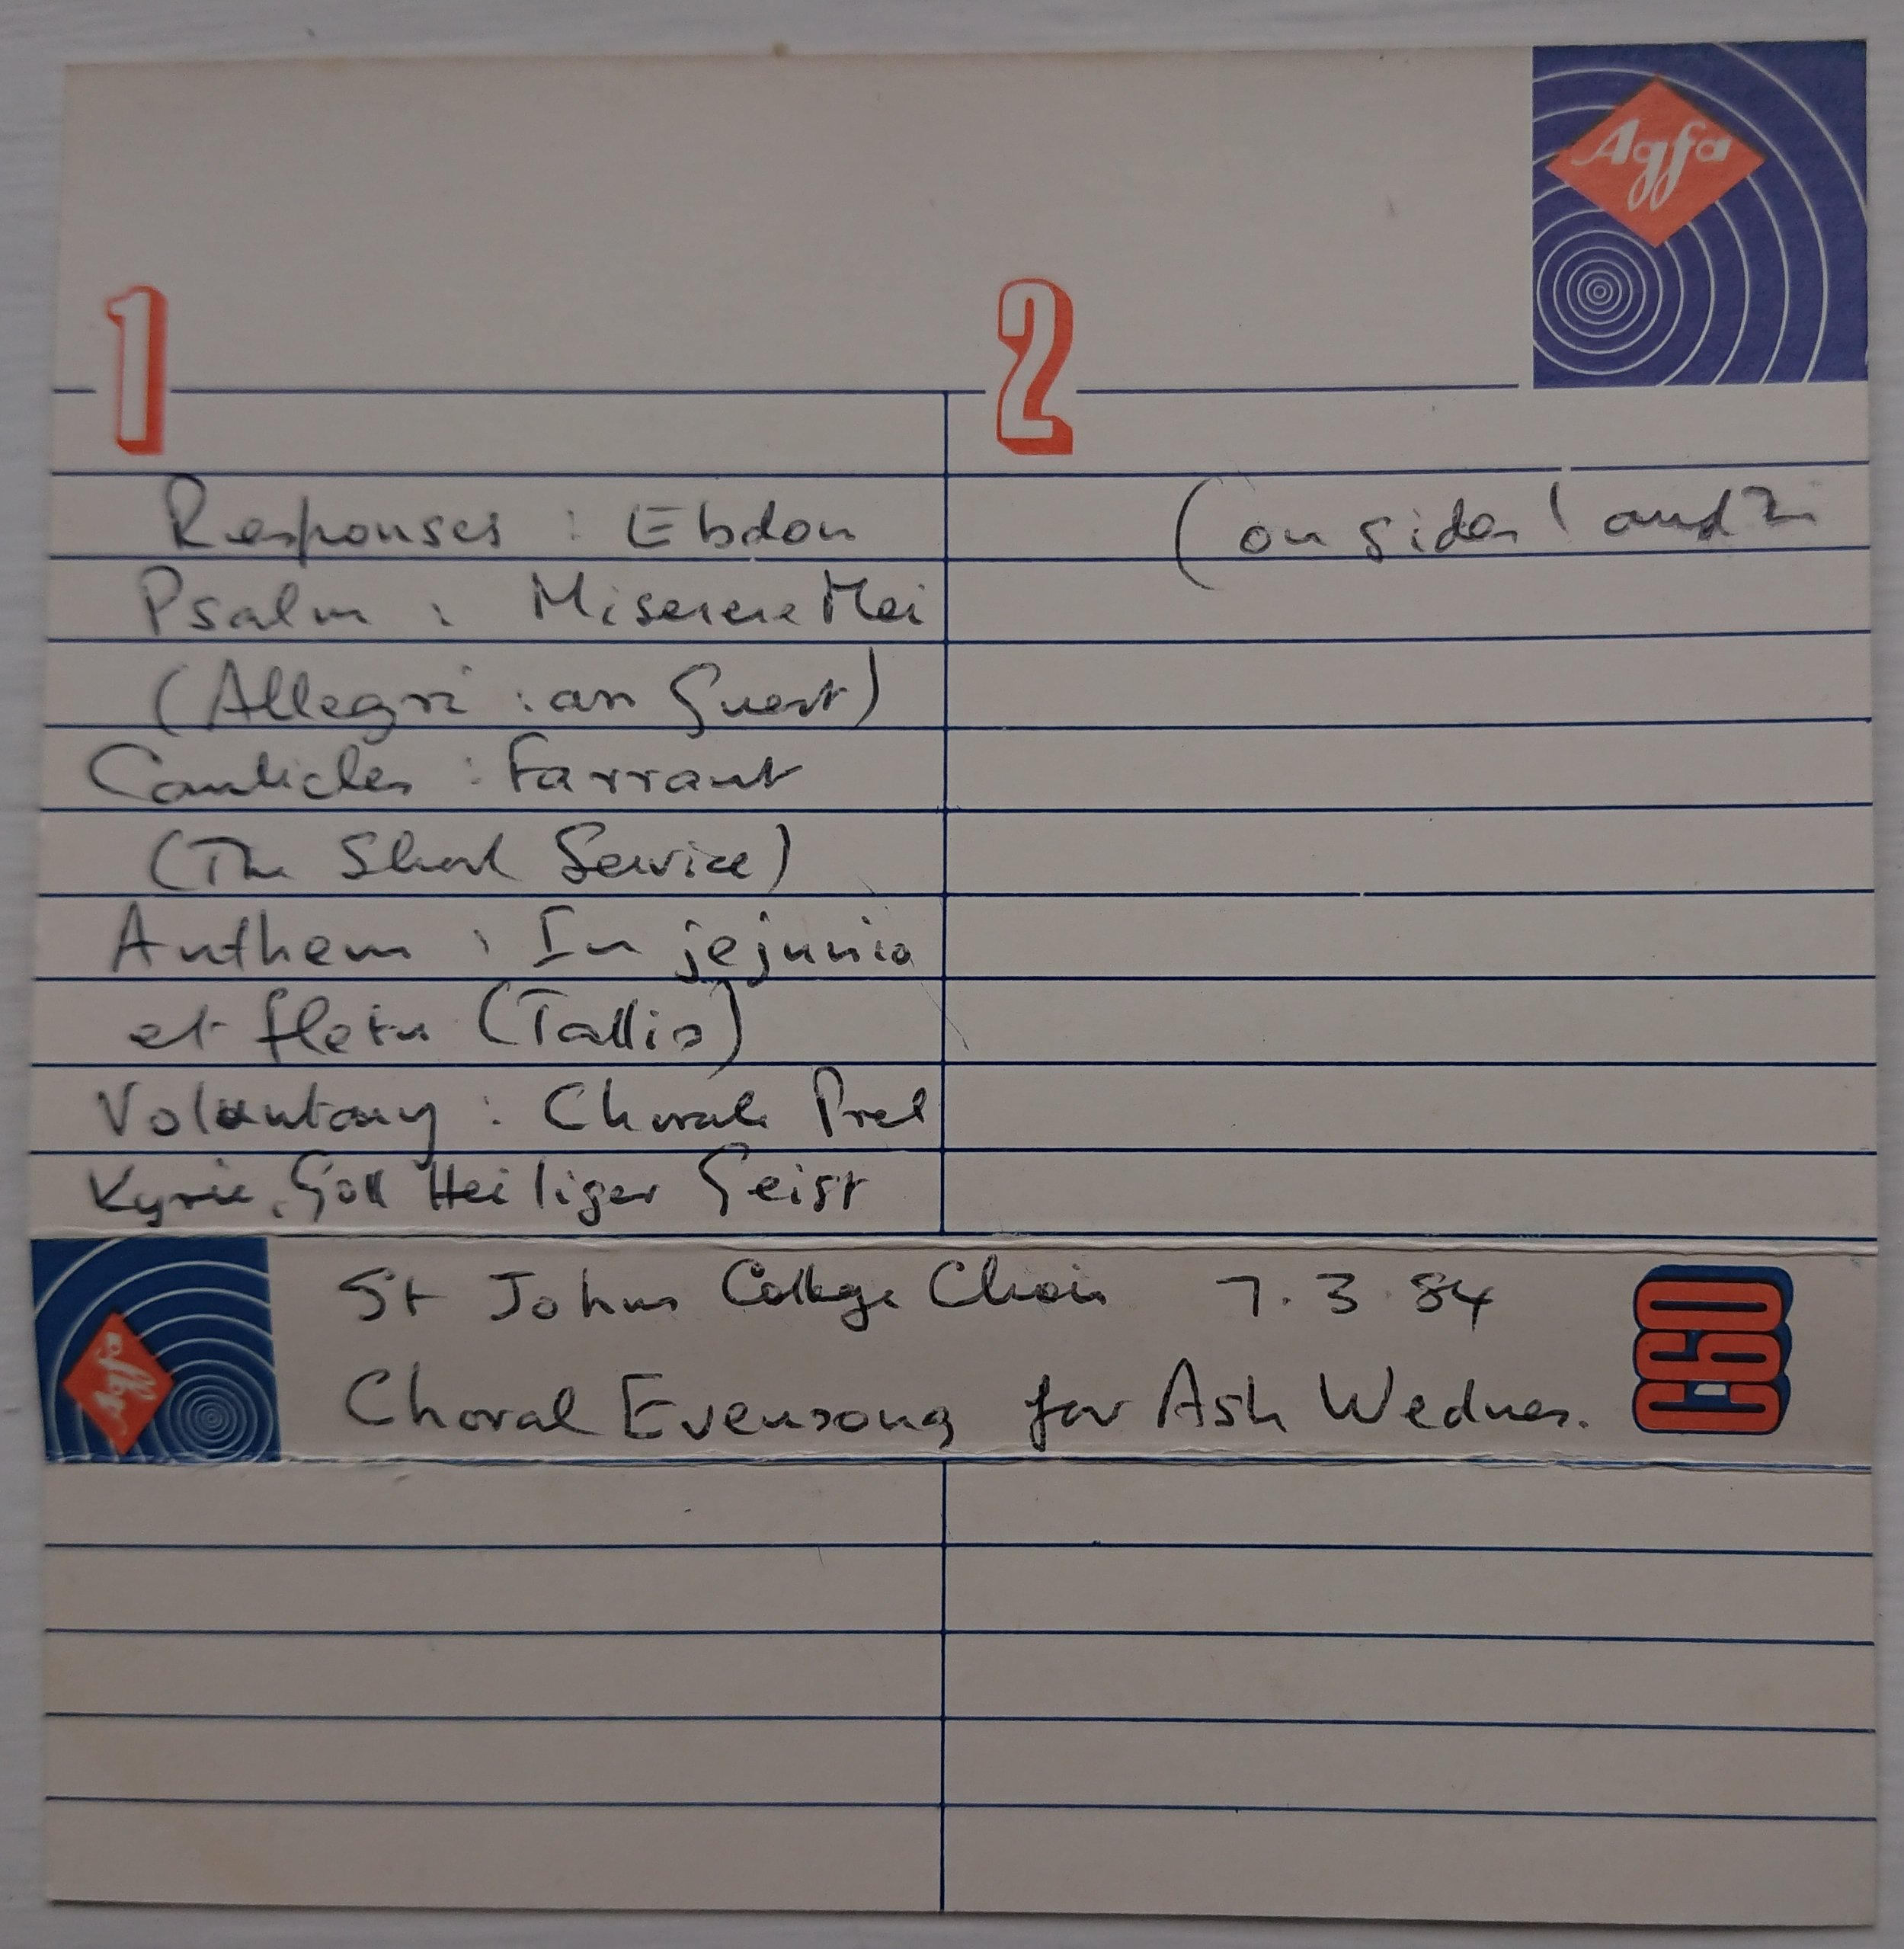 Agfa
1
2
Responses : Ebdon
(on sides 1 and 2
Psalm : Miserere Mei
(Allegri : arr Guest)
Canticles : Farrant
(The Short Service)
Anthem : In jejunio
et fletu (Tallis)
Voluntary : Chorale Prel
Kyrie, Gott Heiliger Geist
Agfa
St Johns College Choir 7.3.84
C60
Choral Evensong for Ash Wednes.